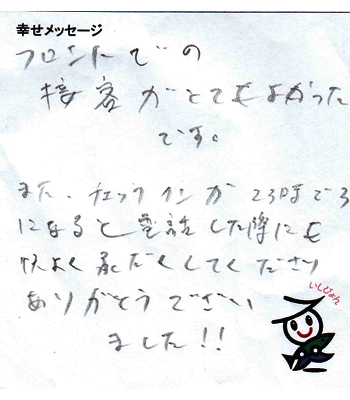 幸せメッセージ
フロントでの
接客がとてもよかった
です。
また、チェックインが23時で3
になると電話した際にも
快よく承だくしてくださり
ありがとうござい
ました!!
いしぴょん